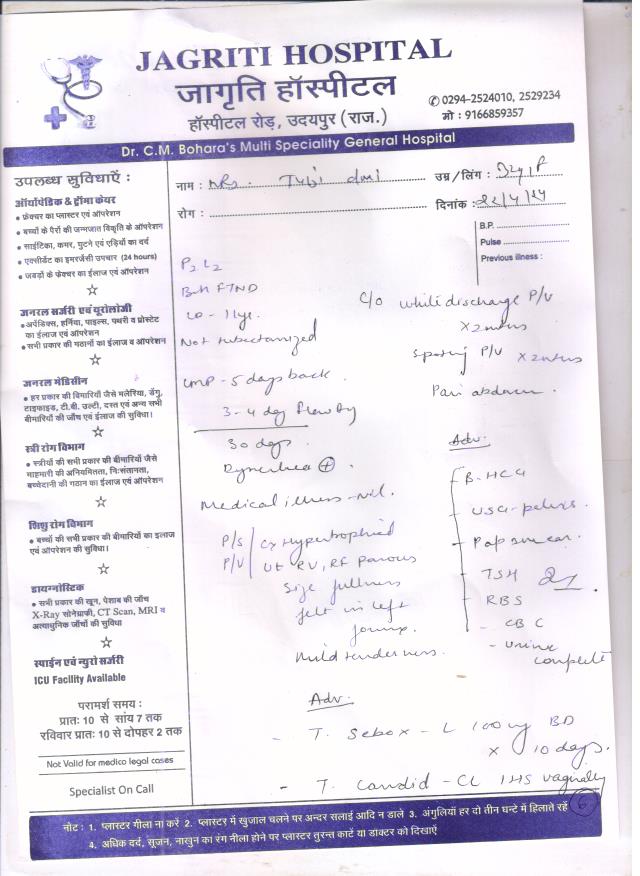 JAGRITI HOSPITAL
जागृति हॉस्पीटल
हॉस्पीटल रोड़, उदयपुर (राज.)
✆ 0294-2524010, 2529234
मो : 9166859357
Dr. C.M. Bohara's Multi Speciality General Hospital
नाम : Mrs.
उम्र / लिंग :
रोग :
दिनांक : 22/4/24
B.P.
Pulse
Previous illness :
उपलब्ध सुविधाएँ :
ऑर्थोपेडिक & ट्रौमा केयर
• फ्रेक्चर का प्लास्टर एवं ऑपरेशन
• बच्चों के पैरों की जन्मजात विकृति के ऑपरेशन
• साईटिका, कमर, घुटने एवं एड़ियों का दर्द
• एक्सीडेंट का इमरजेंसी उपचार (24 hours)
• जबड़ों के फ्रेक्चर का ईलाज एवं ऑपरेशन
जनरल सर्जरी एवं यूरोलोजी
• अपेंडिक्स, हर्निया, पाइल्स, पथरी व प्रोस्टेट
का ईलाज एवं ऑपरेशन
• सभी प्रकार की गठानों का ईलाज व ऑपरेशन
जनरल मेडिसीन
• हर प्रकार की बिमारियाँ जैसे मलेरिया, डेंगू,
टाइफाइड, टी.बी. उल्टी, दस्त एवं अन्य सभी
बीमारियों की जाँच एवं ईलाज की सुविधा।
स्त्री रोग विभाग
• स्त्रीयों की सभी प्रकार की बीमारियाँ जैसे
माहमारी की अनियमितता, निःसंतानता,
बच्चेदानी की गठान का ईलाज एवं ऑपरेशन
शिशु रोग विभाग
• बच्चों की सभी प्रकार की बीमारियों का इलाज
एवं ऑपरेशन की सुविधा।
डायग्नोस्टिक
• सभी प्रकार की खून, पेशाब की जाँच
X-Ray सोनोग्राफी, CT Scan, MRI व
अत्याधुनिक जाँचों की सुविधा
स्पाईन एवं न्युरो सर्जरी
ICU Facility Available
परामर्श समय :
प्रातः 10 से सांय 7 तक
रविवार प्रातः 10 से दोपहर 2 तक
Not Valid for medico legal cases
Specialist On Call
P2 L2
FTND
Not tubectomized
LMP - 5 days back.
3-4 day flow by
30 days
Medical illness - nil.
P/S Cx Hypertrophied
P/V Ut RV, RF Parous
Size fullness
felt in left
fornix.
Mild tenderness.
C/o white discharge P/V
P/V
Pain abdomen.
Adv.
- B-HCG
- USG-pelvis.
- Pap smear.
- TSH
- RBS
- CBC
- Urine
complete
Adv.
- T. Sebox - L 100 mg BD
x 10 days.
- T. Candid - CL 1 HS vaginally
6
नोट : 1. प्लास्टर गीला ना करें 2. प्लास्टर में खुजाल चलने पर अन्दर सलाई आदि न डाले 3. अंगुलियाँ हर दो तीन घन्टे में हिलाते रहें
4. अधिक दर्द, सूजन, नाखुन का रंग नीला होने पर प्लास्टर तुरन्त काटें या डॉक्टर को दिखाऐं